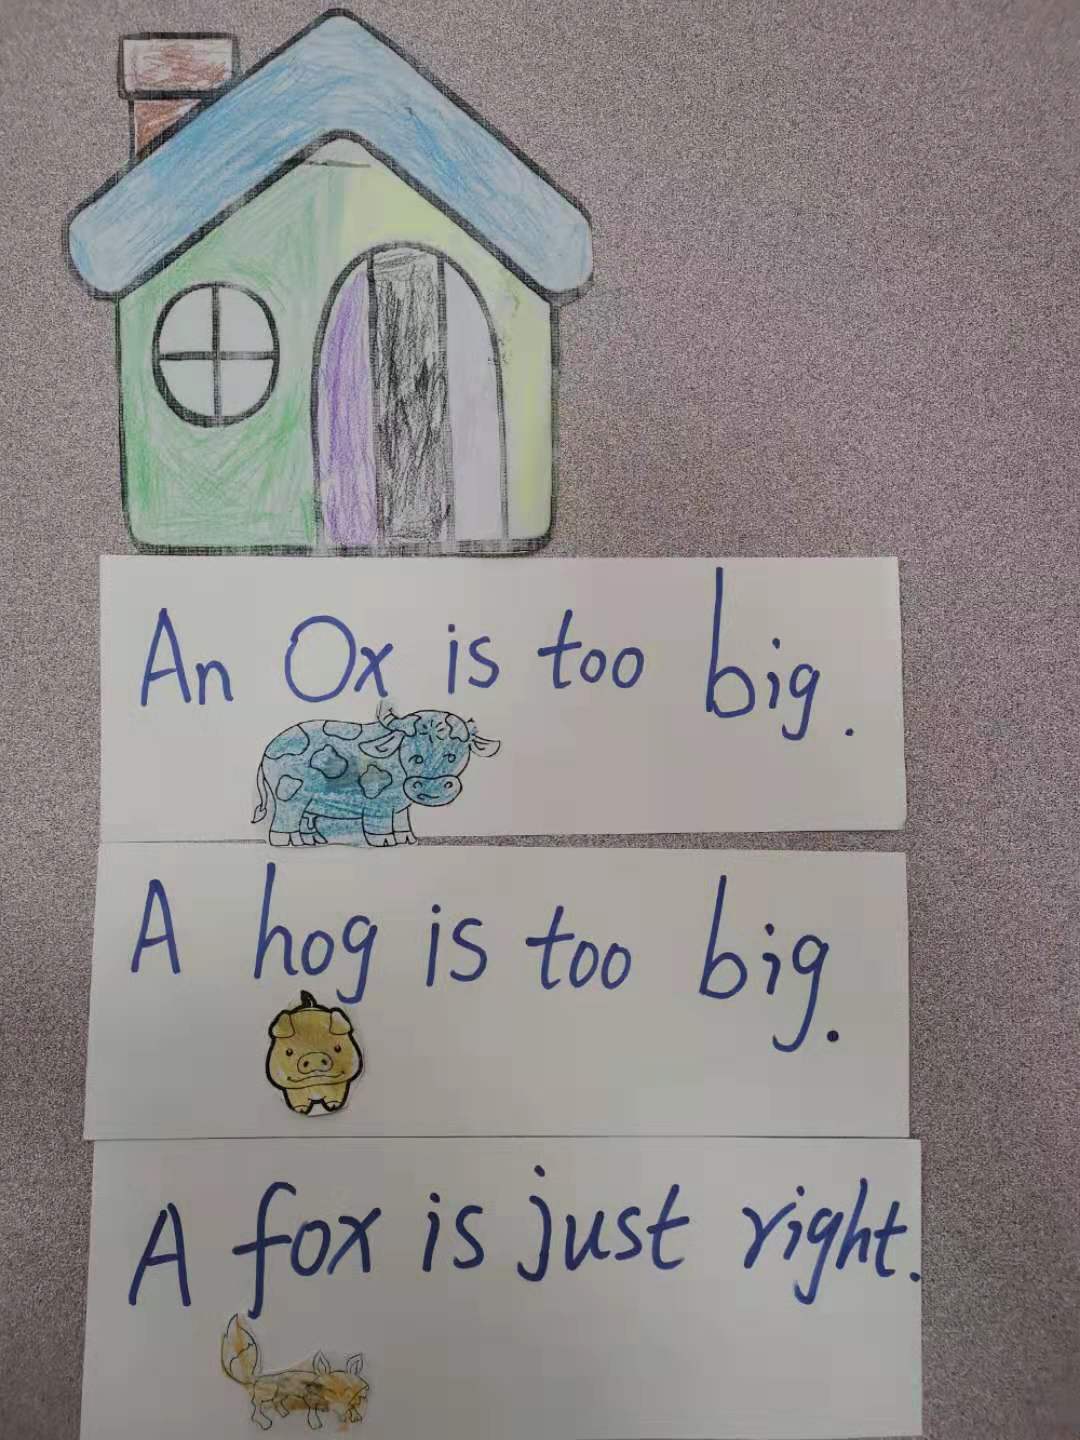 An Ox is too big.
A hog is too big.
A fox is just right.